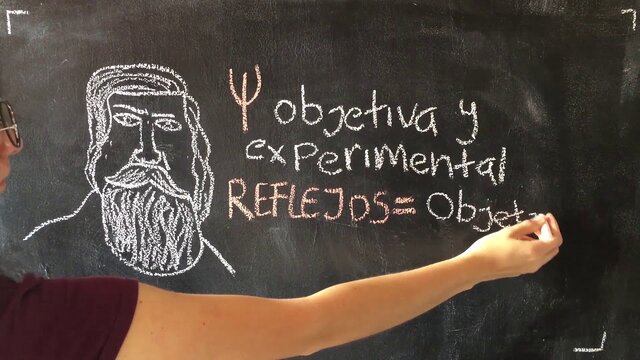 Ψ objetiva y
experimental
REFLEJOS = Objet